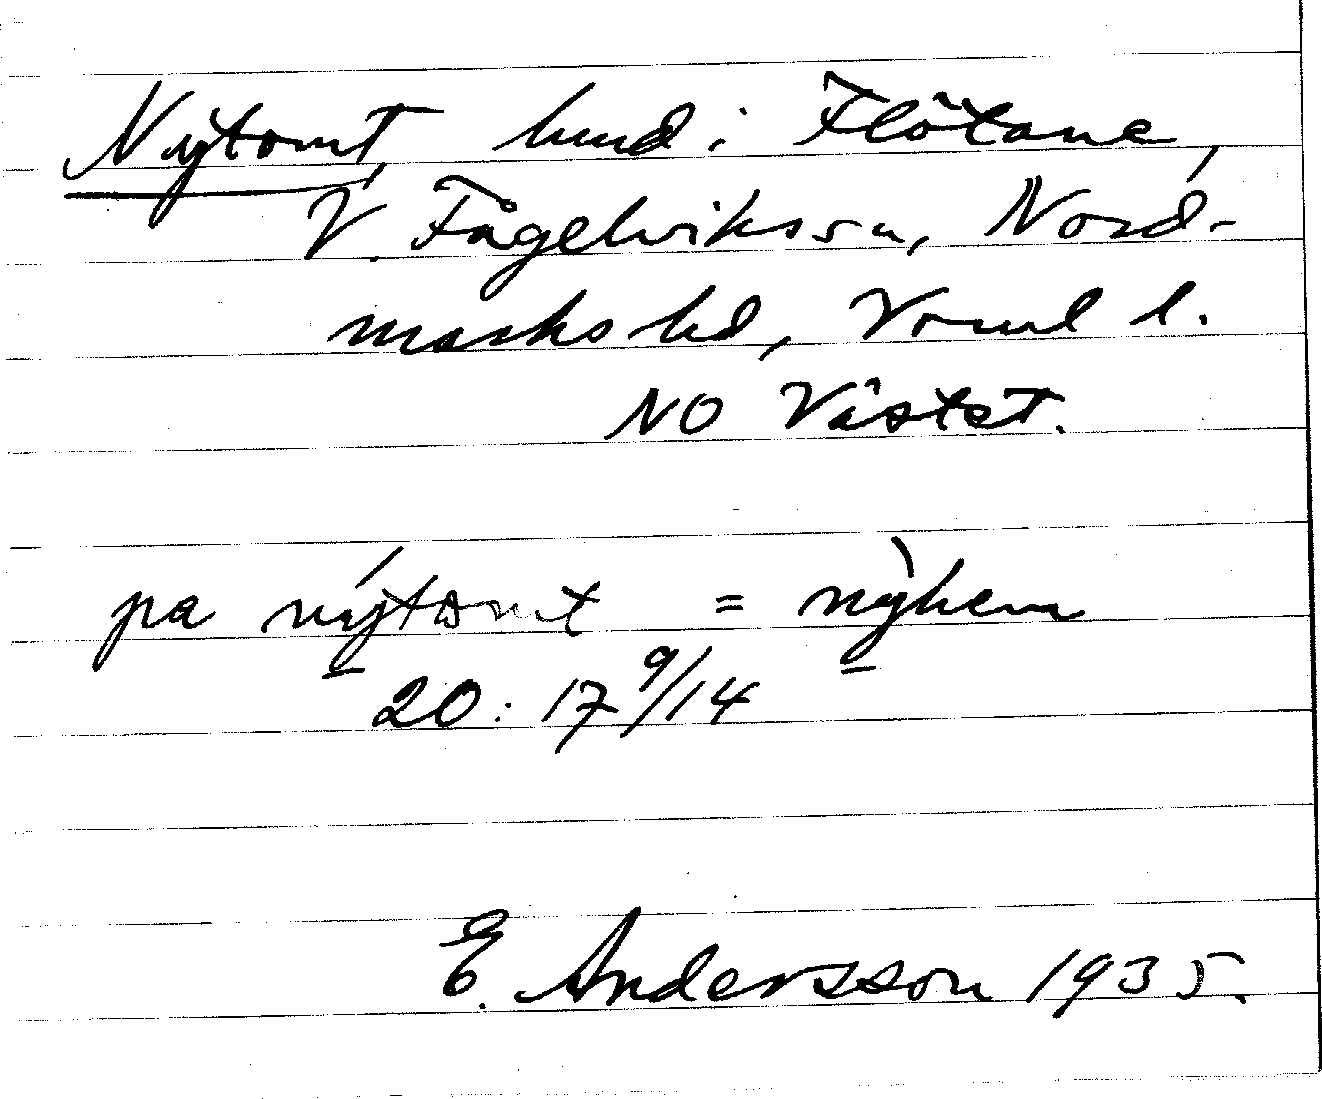 Nýtomt, hmd i Flötane,
V. Fågelvikssn, Nord-
marks hd, Vrml l.
NO Västst.
pa nýtomt = nỳhem
20: 17 9/14
E. Andersson 1935.